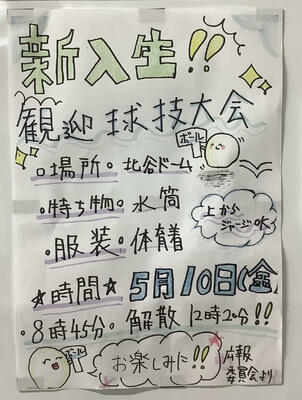 新入生!!
観迎 球技大会
ボール
・場所・北谷ドーム
・持ち物・水筒
・服装・体育着
上から
ジャージOK!
☆時間・5月10日(金)
・8時45分・解散12時20分!!
お楽しみに!!
広報
委員会より